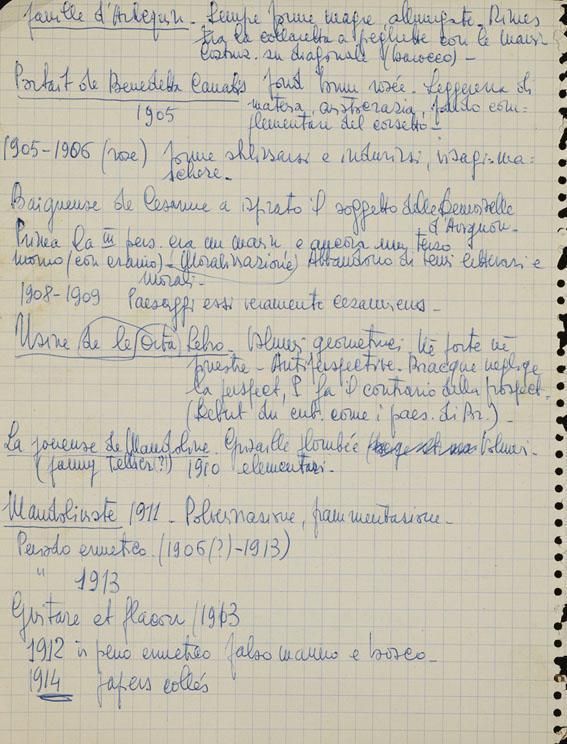 famille d'Arlequin. Sempre forme magre, allungate. Rimes
tra la collaretta a pieghette con le mani
su diagonale (barocco) -
Portrait de Benedetta Canals fond brun rosée. Leggerezza di
1905 matera, aristocrazia, fondo com=
plementare del corsetto -
1905-1906 (rose) forme e indurirsi, visagi-ma=
schere -
Baigneuse de Cesanne a ispirato il soggetto delle Demoiselle
d'Avignon -
Prima la III pers. era un marin e ancora un terzo
uomo (con cranio) - (Moralizzazione) Abbandono di temi letterari e
morali -
1908-1909 Paesaggi essi veramente cezaniens -
Usine de le Orta Hebro - Volumi geometrici Né porte né
finestre - Antiperspective - Bracque neglige
la perspect, P fa il contrario della prospect -
(Début du cub. come i paes. di Br.) -
La joueuse de Mandoline. Grisaille plombée Volumi -
(fanny Tellier(?)) 1910 elementari -
Mandoliniste 1911 - Polverisazione, frammentazione -
Periodo ermetico. (1906(?)-1913)
" 1913
Guitare et flacon / 1913
1912 in pieno ermetico falso marmo e bosco -
1914 papiers collés